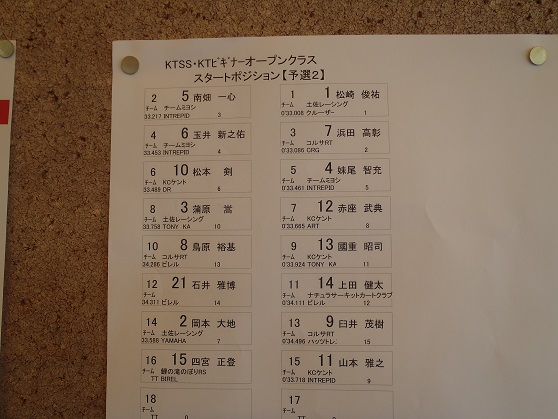 KTSS・KTﾋﾞｷﾞﾅｰオープンクラス
スタートポジション【予選2】
2 5 南畑 一心
ﾁｰﾑ チームミヨシ
33.217 INTREPID 3
4 6 玉井 新之佑
ﾁｰﾑ チームミヨシ
33.453 INTREPID 4
6 10 松本 剣
ﾁｰﾑ KCケント
33.469 DR 6
8 3 蒲原 嵩
ﾁｰﾑ 土佐レーシング
33.758 TONY KA 10
10 8 鳥原 裕基
ﾁｰﾑ コルサRT
34.286 ビレル 13
12 21 石井 雅博
ﾁｰﾑ
34.311 ビレル 14
14 2 岡本 大地
ﾁｰﾑ 土佐レーシング
33.588 YAMAHA 7
16 15 四宮 正登
ﾁｰﾑ 鯉の滝のぼりRS
TT BIREL
18
ﾁｰﾑ
TT
1 1 松崎 俊祐
ﾁｰﾑ 土佐レーシング
0'33.008 クルーザー 1
3 7 浜田 高彰
ﾁｰﾑ コルサRT
0'33.086 CRG 2
5 4 妹尾 智充
ﾁｰﾑ チームミヨシ
0'33.461 INTREPID 5
7 12 赤座 武典
ﾁｰﾑ KCケント
0'33.665 ART 8
9 13 國重 昭司
ﾁｰﾑ KCケント
0'33.924 TONY KA 11
11 14 上田 健太
ﾁｰﾑ ナチュラサーキットカートクラブ
0'34.111 ビレル 12
13 9 臼井 茂樹
ﾁｰﾑ コルサRT
0'34.496 ハッツトレ. 15
15 11 山本 雅之
ﾁｰﾑ KCケント
0'33.718 INTREPID 9
17
ﾁｰﾑ
TT